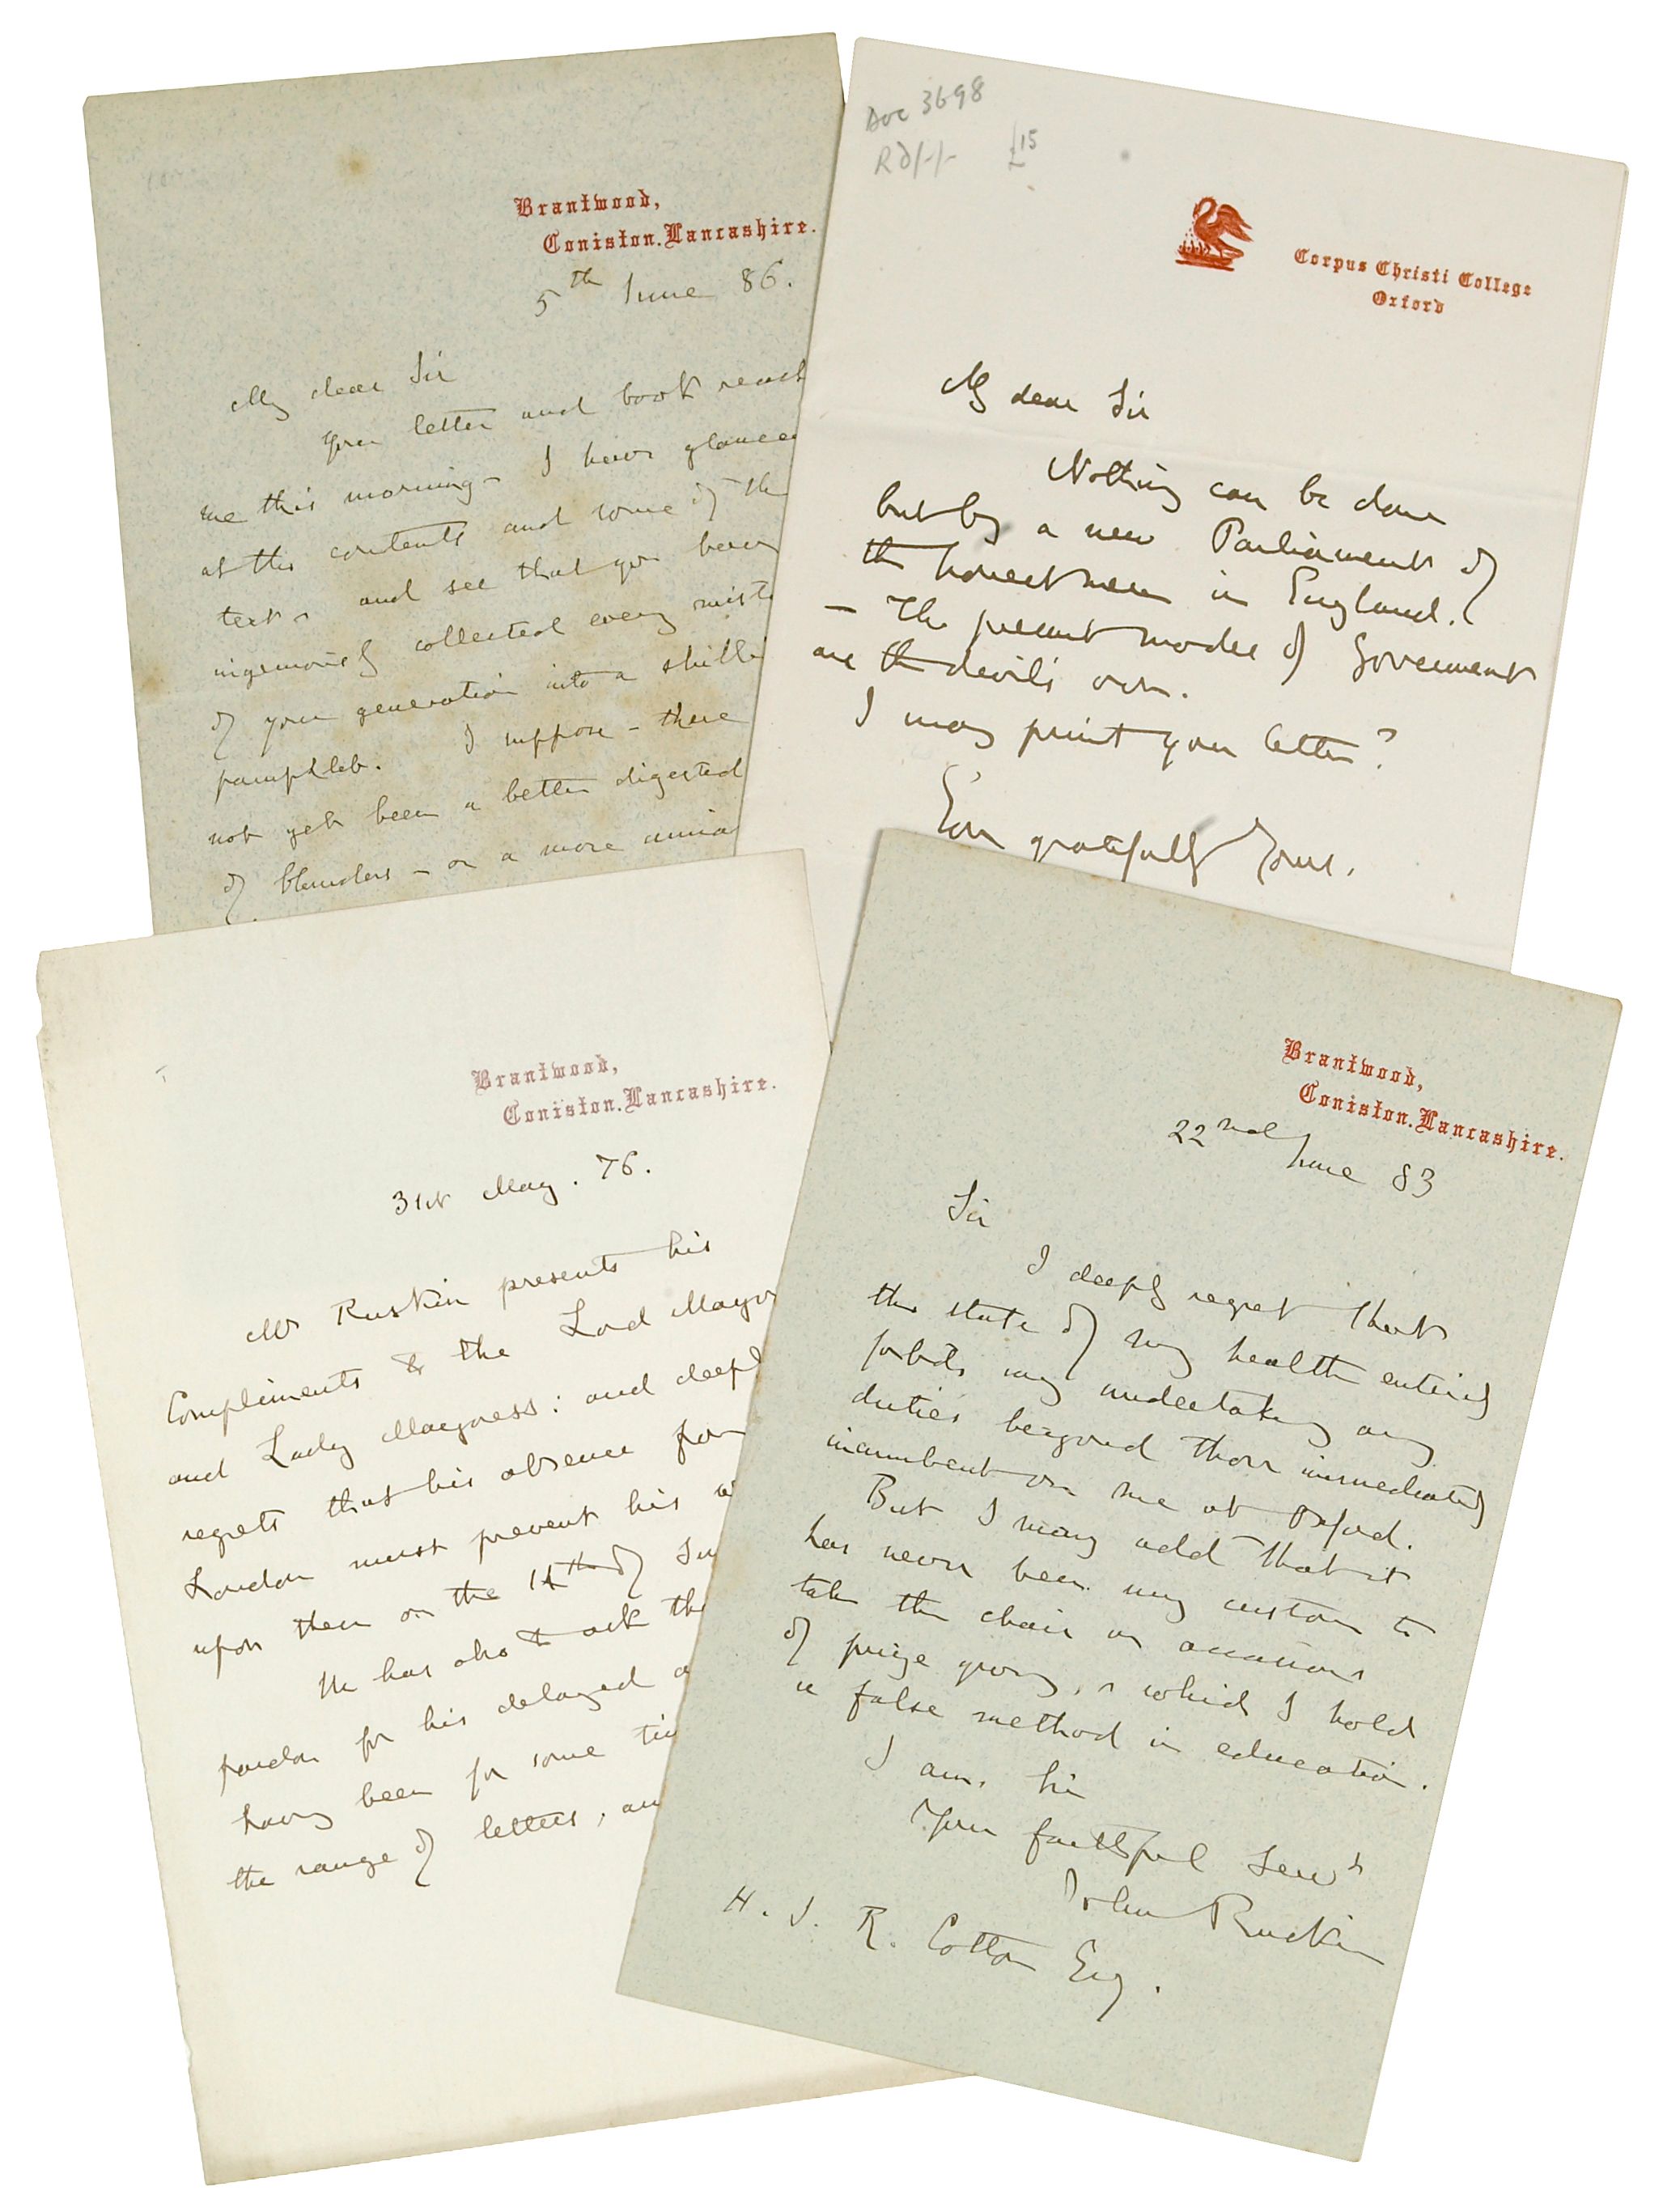 Brantwood,
Coniston. Lancashire.
5th June 86.
My dear Sir
Your letter and book reach
me this morning - I have glanced
at the contents and some of the
text - and see that you have
ingeniously collected every mist
of your generation into a shilli
pamphlet. I suppose - there
not yet been a better digested
of blunders - or a more
Doc 3698
£15
Corpus Christi College
Oxford
My dear Sir
Nothing can be done
but by a new Parliament of
the honest men in England.
- The present modes of Government
are the devil's own.
I may print your letter?
Ever gratefully Yours.
Brantwood,
Coniston. Lancashire.
31st May. 76.
Mr Ruskin presents his
Compliments to the Lord Mayor
and Lady Mayoress: and deepl
regrets that his absence from
London must prevent his
upon them on the 14th of
He has also to ask the
pardon for his delayed a
having been for some
the range of letters, an
Brantwood,
Coniston. Lancashire.
22nd June 83
Sir
I deeply regret that
the state of my health entirely
forbids my undertaking any
duties beyond those immediately
incumbent on me at Oxford.
But I may add that it
has never been my custom to
take the chair on occasions
of prize giving, - which I hold
a false method in education.
I am. Sir
Your faithful Servt
John Ruskin
H. J. R. Cotton Esq.